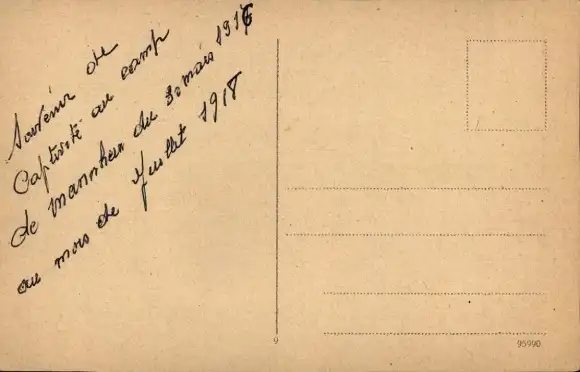 Souvenir de
Captivité au camp
de Mannheim du 30 mars 1916
au mois de Juillet 1918
9
95990